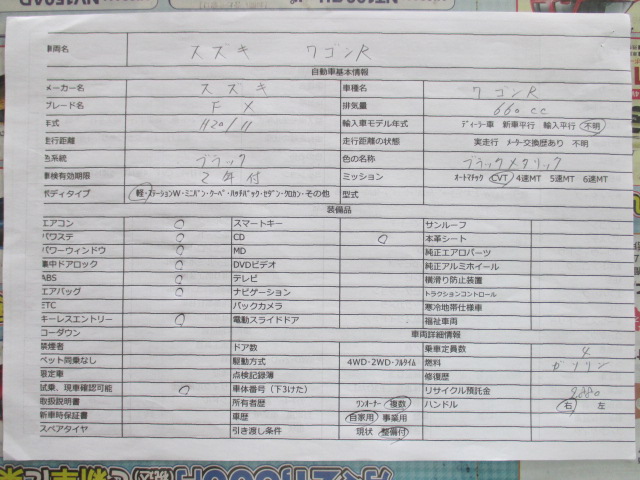 車両名 スズキ ワゴンR
自動車基本情報
メーカー名 スズキ 車種名 ワゴンR
グレード名 FX 排気量 660cc
年式 H20/11 輸入車モデル年式 ディーラー車 新車平行 輸入平行 不明
走行距離 走行距離の状態 実走行 メーター交換歴あり 不明
色系統 ブラック 色の名称 ブラックメタリック
車検有効期限 2年付 ミッション オートマチック CVT 4速MT 5速MT 6速MT
ボディタイプ 軽・ステーションW・ミニバン・クーペ・ハッチバック・セダン・クロカン・その他 型式
装備品
エアコン ○ スマートキー サンルーフ
パワステ ○ CD ○ 本革シート
パワーウィンドウ ○ MD 純正エアロパーツ
集中ドアロック ○ DVDビデオ 純正アルミホイール
ABS ○ テレビ 横滑り防止装置
エアバッグ ○ ナビゲーション トラクションコントロール
ETC バックカメラ 寒冷地帯仕様車
キーレスエントリー ○ 電動スライドドア 福祉車両
ローダウン 車両詳細情報
禁煙者 ドア数 乗車定員数 4
ペット同乗なし 駆動方式 4WD・2WD・フルタイム 燃料 ガソリン
限定車 点検記録簿 修復歴
試乗、現車確認可能 ○ 車体番号（下3けた） リサイクル預託金
取扱説明書 所有者歴 ワンオーナー 複数 ハンドル 右 左
新車時保証書 車歴 自家用 事業用
スペアタイヤ 引き渡し条件 現状 整備付